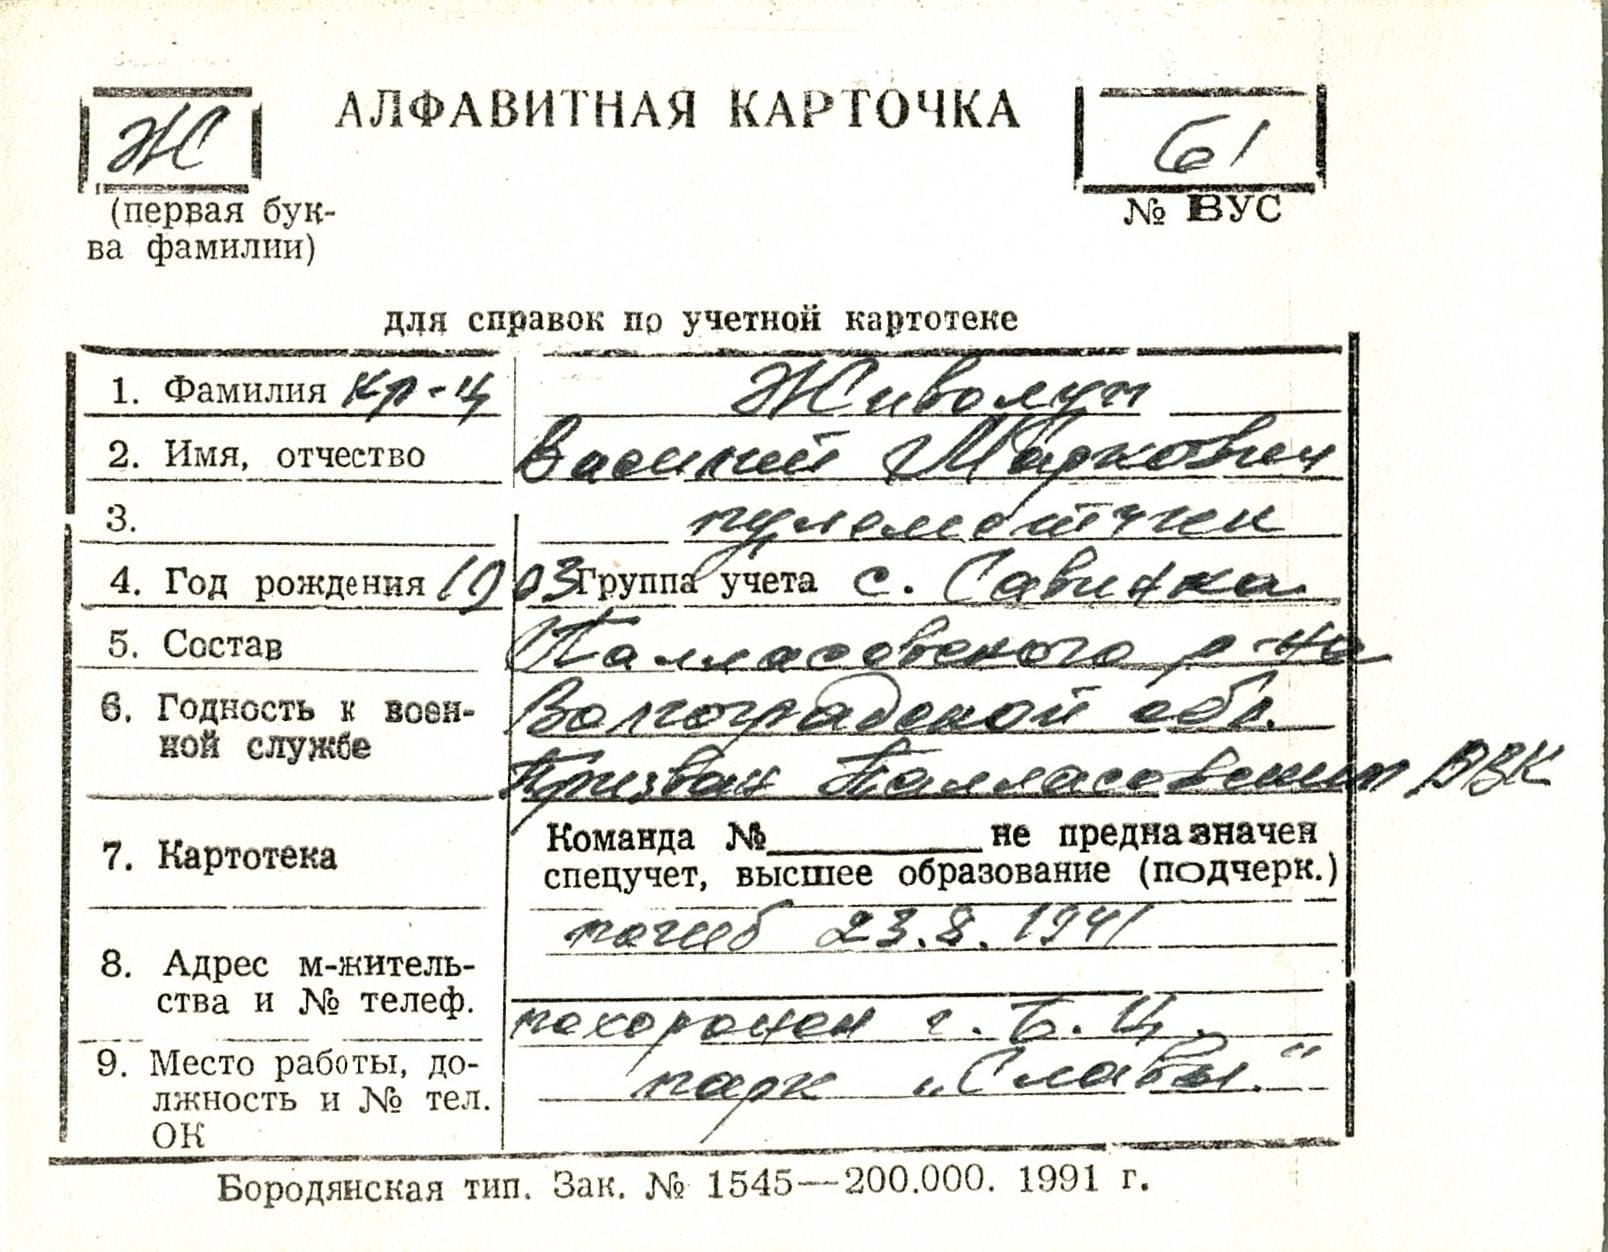 Ж
АЛФАВИТНАЯ КАРТОЧКА
61
(первая бук-
ва фамилии)
№ ВУС
для справок по учетной картотеке
1. Фамилия кр-ц Живолуп
2. Имя, отчество Василий Маркович
3. пулеметчик
4. Год рождения 1903 Группа учета с. Савинка
5. Состав Палласовского р-на
6. Годность к воен-
ной службе
Волгоградской обл.
Призван Палласовским РВК
7. Картотека
Команда № не предназначен
спецучет, высшее образование (подчерк.)
погиб 23.8.1941
8. Адрес м-житель-
ства и № телеф.
похоронен г. Б.Ц.
9. Место работы, до-
лжность и № тел.
ОК
парк „Славы"
Бородянская тип. Зак. № 1545—200.000. 1991 г.